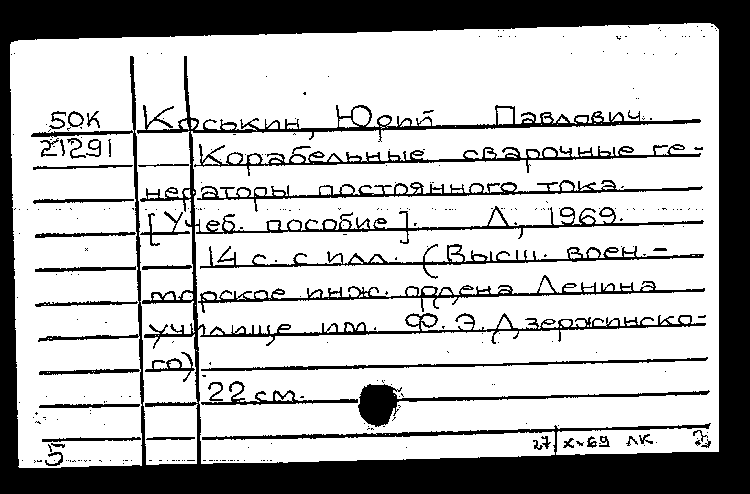 50К Коськин, Юрий Павлович.
21291 Корабельные сварочные ге-
нераторы постоянного тока.
[Учеб. пособие]. Л., 1969.
14 с. с илл. (Высш. воен.-
морское инж. ордена Ленина
училище им. Ф. Э. Дзержинско-
го).
22 см.
5 27/X-69 ЛК